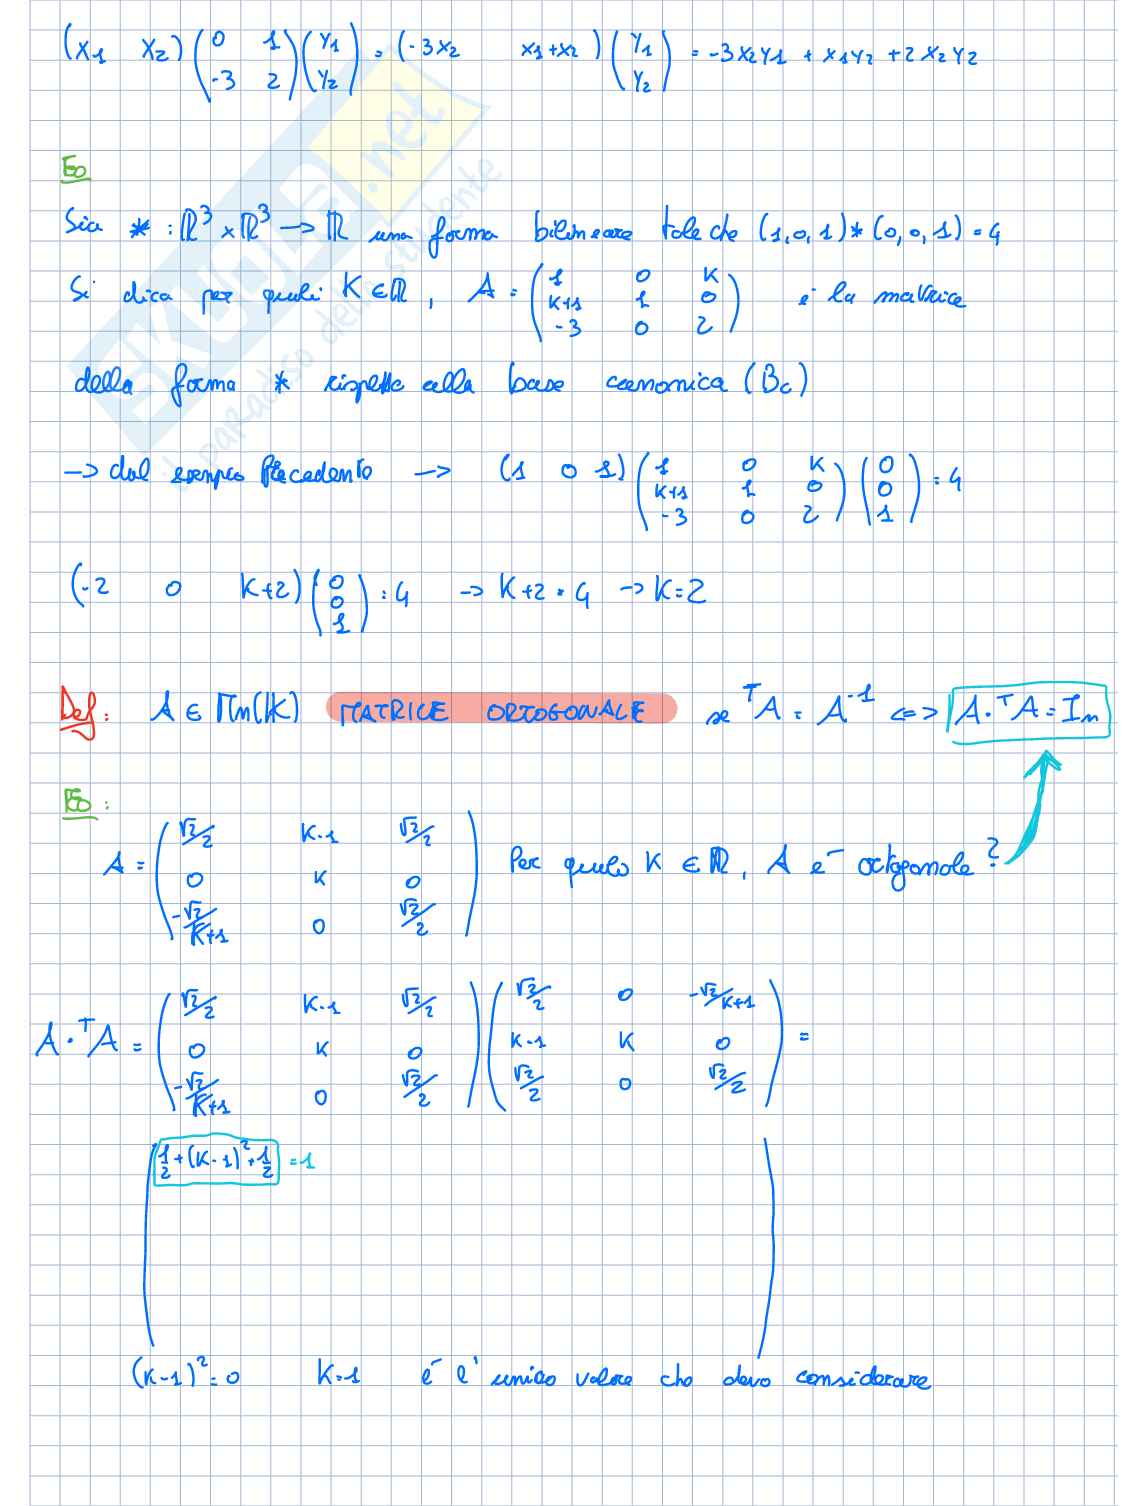 (x1 x2) (0 1 / -3 2) (y1 / y2) = (-3x2 x1+x2) (y1 / y2) = -3x2y1 + x1y2 + 2x2y2
Es
Sia * : ℝ³ × ℝ³ → ℝ una forma bilineare tale che (1,0,1) * (0,0,1) = 4
Si dica per quali K ∈ ℝ, A = (1 0 K / K+1 1 0 / -3 0 2) è la matrice
della forma * rispetto alla base canonica (Bc)
→ dal esempio Precedente → (1 0 1) (1 0 K / K+1 1 0 / -3 0 2) (0 / 0 / 1) = 4
(-2 0 K+2) (0 / 0 / 1) = 4 → K+2 = 4 → K = 2
Def: A ∈ Mn(K) MATRICE ORTOGONALE se ᵀA = A⁻¹ <=> A · ᵀA = In
Es :
A = (√2/2 K-1 √2/2 / 0 K 0 / -√2/K+1 0 √2/2) Per quale K ∈ ℝ, A è ortogonale ?
A · ᵀA = (√2/2 K-1 √2/2 / 0 K 0 / -√2/K+1 0 √2/2) (√2/2 0 -√2/K+1 / K-1 K 0 / √2/2 0 √2/2) =
(1/2 + (K-1)² + 1/2 = 1 )
(K-1)² = 0 K=1 è l' unico valore che devo considerare
SKUOLA.net
il paradiso dello studente